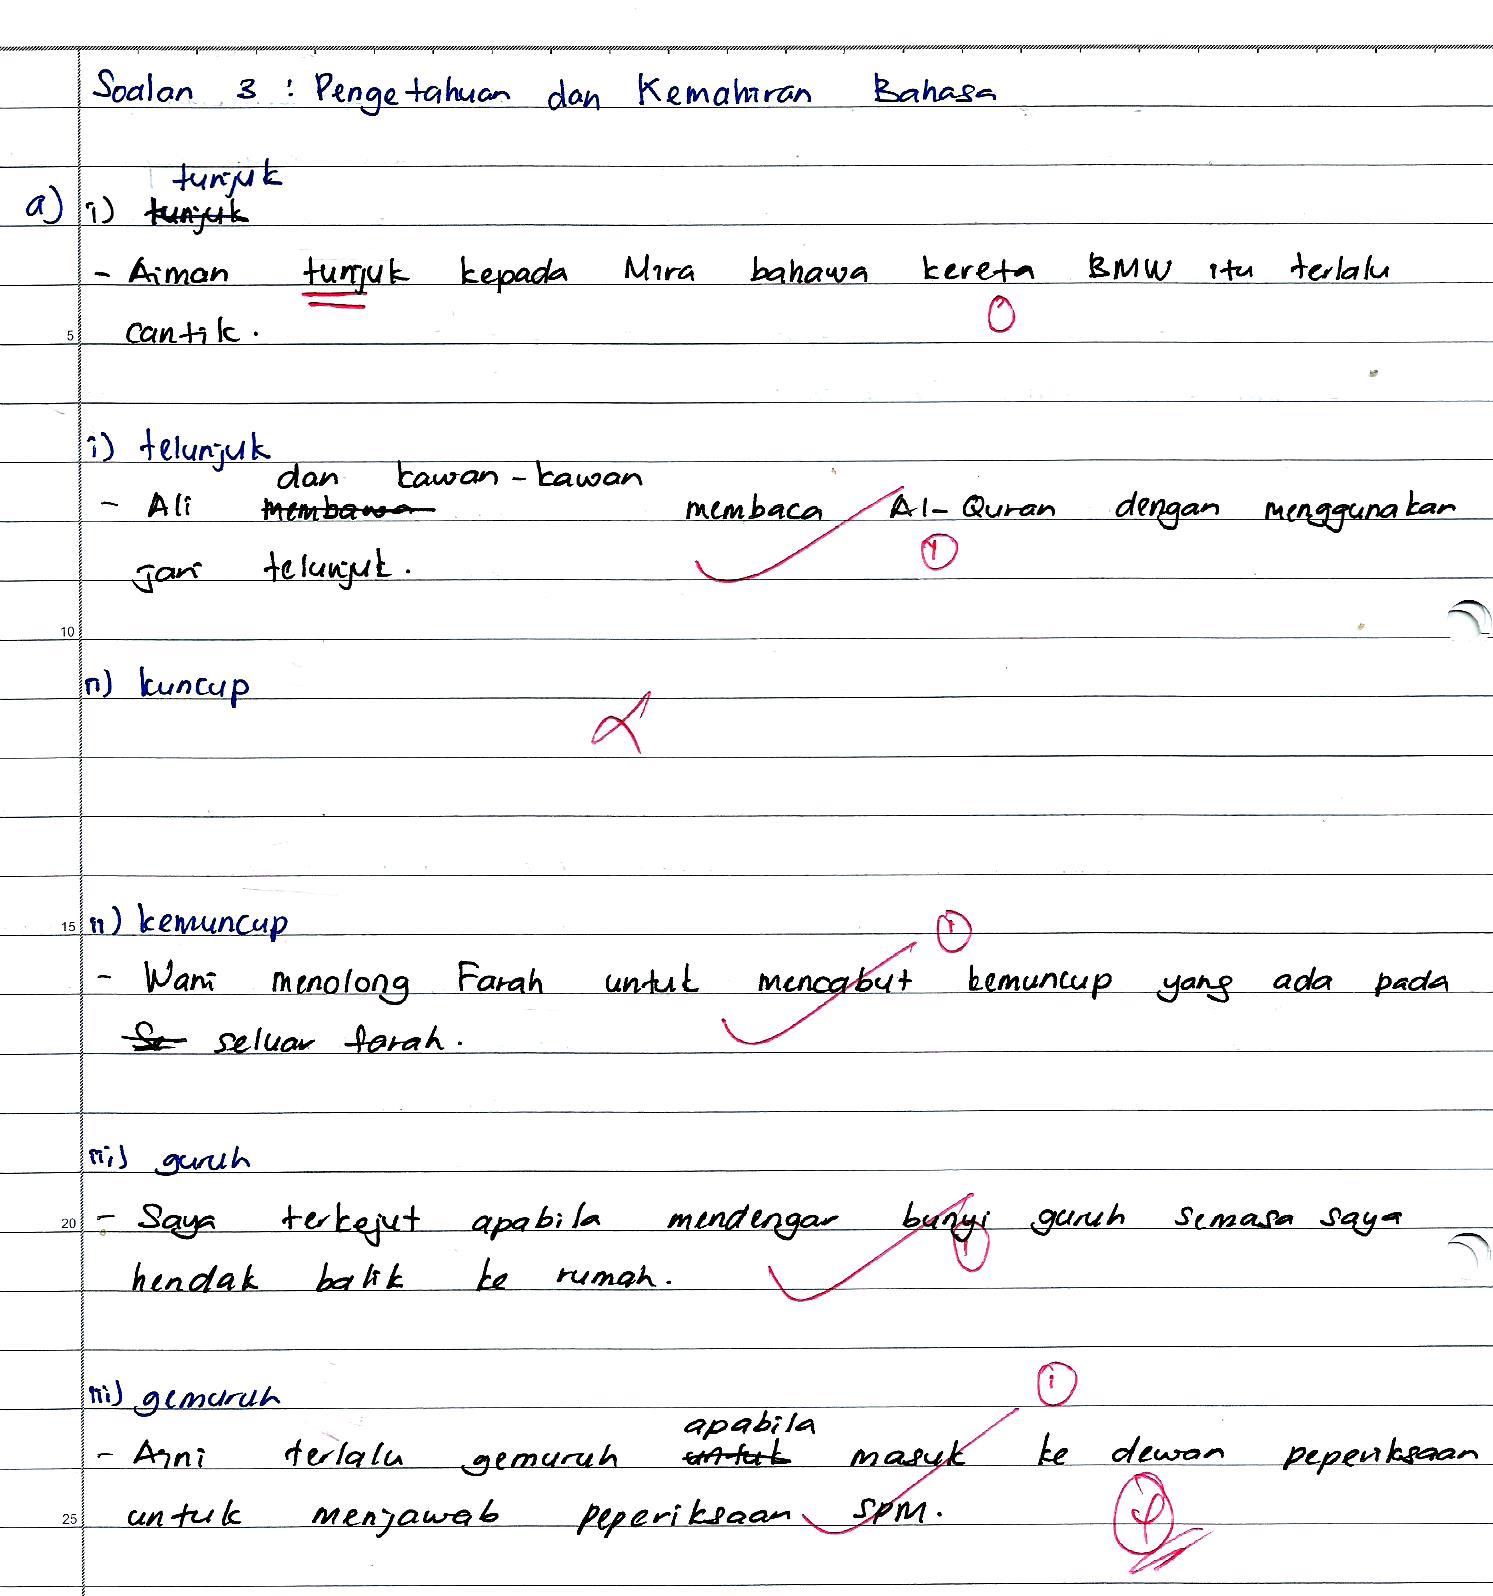 Soalan 3 : Pengetahuan dan Kemahiran Bahasa
tunjuk
a) i) tunjuk
- Aiman tunjuk kepada Mira bahawa kereta BMW itu terlalu
0
5 cantik.
i) telunjuk
dan kawan-kawan
- Ali membawa membaca Al-Quran dengan menggunakan
1
jari telunjuk.
10
ii) kuncup
15 ii) kemuncup
1
- Wani menolong Farah untuk mencabut kemuncup yang ada pada
Se seluar farah.
iii) guruh
20 - Saya terkejut apabila mendengar bunyi guruh semasa saya
1
hendak balik ke rumah.
iii) gemuruh
1
apabila
- Azni terlalu gemuruh untuk masuk ke dewan peperiksaan
25 untuk menjawab peperiksaan SPM.
4